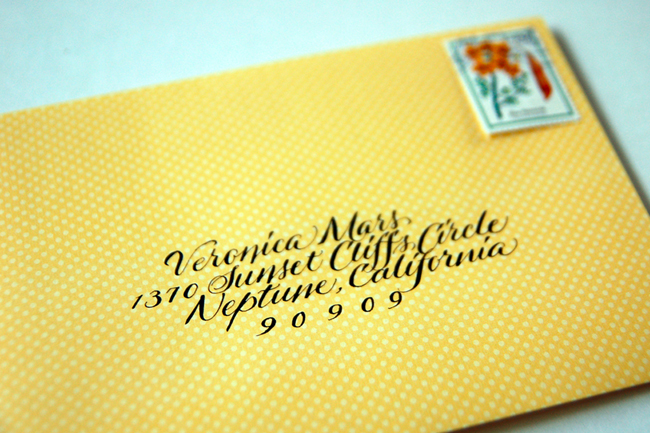 Veronica Mars
1370 Sunset Cliffs Circle
Neptune, California
90909